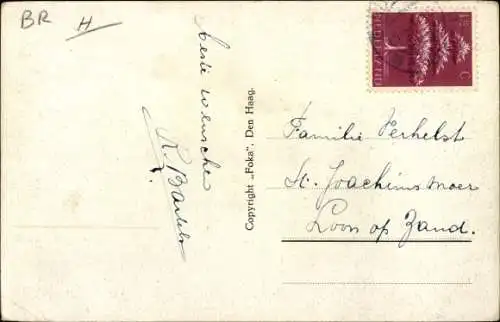 BR
H
beste wenschen
K. Bartels
Copyright „Foka", Den Haag.
Familie Verhelst
St. Joachimsmoer
Loon op Zand.
NEDERLAND